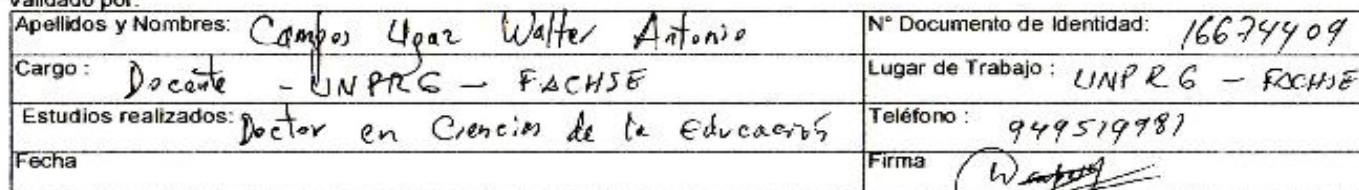 Validado por:
Apellidos y Nombres: Campos Ugaz Walter Antonio N° Documento de Identidad: 16674409
Cargo : Docente - UNPRG - FACHSE Lugar de Trabajo : UNPRG - FACHSE
Estudios realizados: Doctor en Ciencias de la Educación Teléfono : 949519981
Fecha Firma